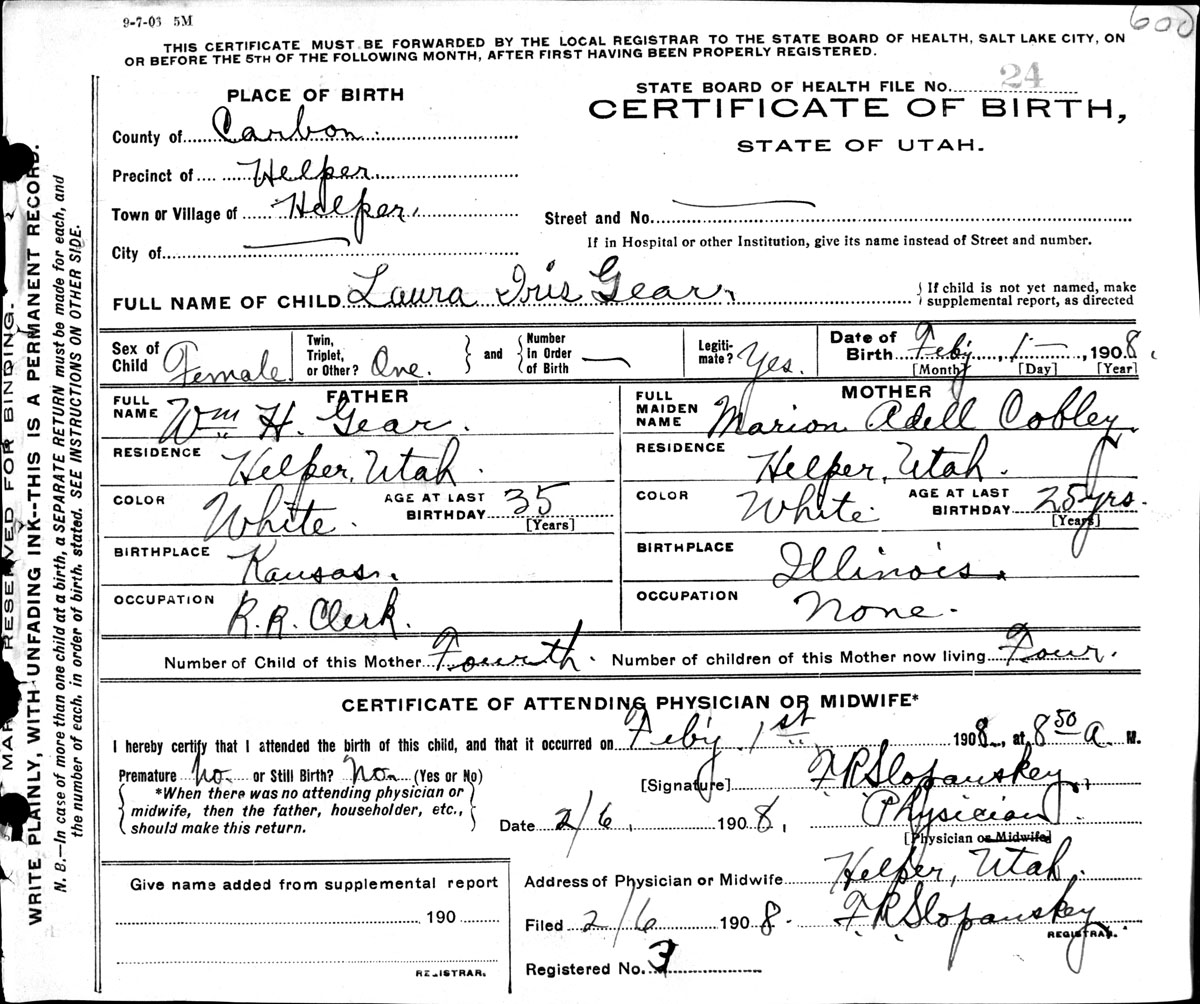 9-7-03 5M
600
THIS CERTIFICATE MUST BE FORWARDED BY THE LOCAL REGISTRAR TO THE STATE BOARD OF HEALTH, SALT LAKE CITY, ON
OR BEFORE THE 5TH OF THE FOLLOWING MONTH, AFTER FIRST HAVING BEEN PROPERLY REGISTERED.
STATE BOARD OF HEALTH FILE NO. 24
CERTIFICATE OF BIRTH,
STATE OF UTAH.
PLACE OF BIRTH
County of Carbon.
Precinct of Helper.
Town or Village of Helper.
Street and No.
City of
If in Hospital or other Institution, give its name instead of Street and number.
FULL NAME OF CHILD Laura Iris Gear.
{ If child is not yet named, make
supplemental report, as directed
Sex of Child Female. Twin, Triplet, or Other? One. and Number In Order of Birth — Legiti-mate? Yes. Date of Birth Feby, 1 —, 1908.
[Month] [Day] [Year]
FATHER
FULL NAME Wm H. Gear.
RESIDENCE Helper, Utah.
COLOR White. AGE AT LAST BIRTHDAY 35 [Years]
BIRTHPLACE Kansas.
OCCUPATION R.R. Clerk.
MOTHER
FULL MAIDEN NAME Marion Adell Cobley.
RESIDENCE Helper, Utah.
COLOR White. AGE AT LAST BIRTHDAY 25 yrs. [Years]
BIRTHPLACE Illinois.
OCCUPATION None.
Number of Child of this Mother Fourth. Number of children of this Mother now living Four.
CERTIFICATE OF ATTENDING PHYSICIAN OR MIDWIFE*
I hereby certify that I attended the birth of this child, and that it occurred on Feby. 1st, 1908, at 8 50 A. M.
Premature No. or Still Birth? No. (Yes or No)
*When there was no attending physician or
midwife, then the father, householder, etc.,
should make this return.
[Signature] F.R. Slopanskey,
Physician.
Date 2/6, 1908,
[Physician or Midwife]
Address of Physician or Midwife Helper, Utah.
Filed 2/6 1908. F.R. Slopanskey
REGISTRAR.
Registered No. 3
Give name added from supplemental report
190
REGISTRAR.
RESERVED FOR BINDING.
WRITE PLAINLY, WITH UNFADING INK--THIS IS A PERMANENT RECORD.
N. B.—In case of more than one child at a birth, a SEPARATE RETURN must be made for each, and
the number of each, in order of birth, stated. SEE INSTRUCTIONS ON OTHER SIDE.